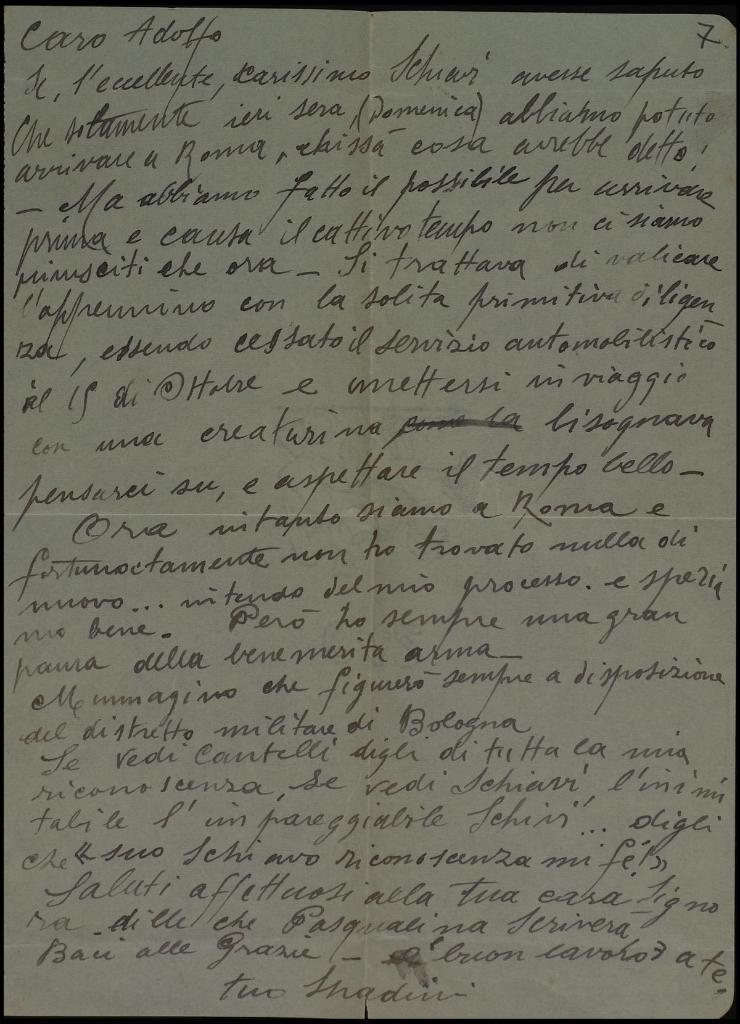 7
Caro Adolfo
Se, l'eccellente, carissimo Schiavi avesse saputo
che solamente ieri sera, (Domenica) abbiamo potuto
arrivare a Roma, chissà cosa avrebbe detto!
— Ma abbiamo fatto il possibile per arrivare
prima e causa il cattivo tempo non ci siamo
riusciti che ora — Si trattava di valicare
l'appennino con la solita primitiva diligen
za, essendo cessato il servizio automobilistico
il 15 di Ottobre e mettersi in viaggio
con una creaturina come la bisognava
pensarci su, e aspettare il tempo bello —
Ora intanto siamo a Roma e
fortunatamente non ho trovato nulla di
nuovo... intendo del mio processo. e speria
mo bene. Però ho sempre una gran
paura della benemerita arma —
M'immagino che figurerò sempre a disposizione
del distretto militare di Bologna
Se vedi Cantelli digli di tutta la mia
riconoscenza, se vedi Schiavi, l'inimi
tabile l'impareggiabile Schivi... digli
che « suo schiavo riconoscenza mi fé! »
Saluti affettuosi alla tua cara Signo
ra dille che Pasqualina scriverà
Baci alle Grazie — e buon lavoro a te.
tuo Spadini